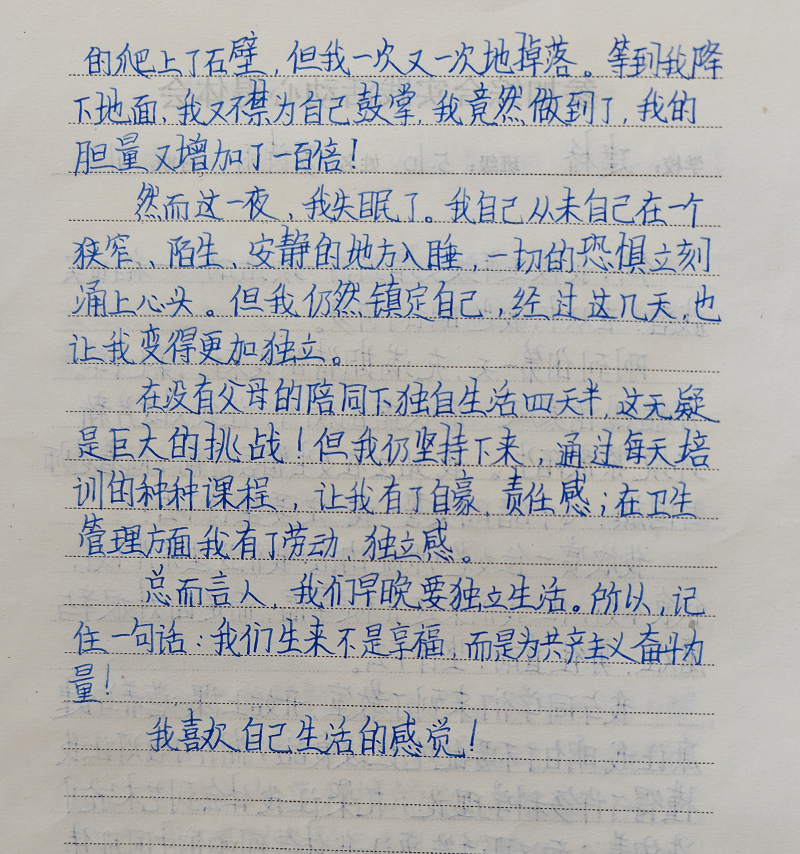 的爬上了石壁，但我一次又一次地掉落。等到我降
下地面，我又不禁为自己鼓掌，我竟然做到了，我的
胆量又增加了一百倍！
然而这一夜，我失眠了。我自己从未自己在一个
狭窄、陌生、安静的地方入睡，一切的恐惧立刻
涌上心头。但我仍然镇定自己，经过这几天，也
让我变得更加独立。
在没有父母的陪同下独自生活四天半，这无疑
是巨大的挑战！但我仍坚持下来，通过每天培
训的种种课程，让我有了自豪、责任感；在卫生
管理方面我有了劳动、独立感。
总而言人，我们早晚要独立生活。所以，记
住一句话：我们生来不是享福，而是为共产主义奋斗力
量！
我喜欢自己生活的感觉！